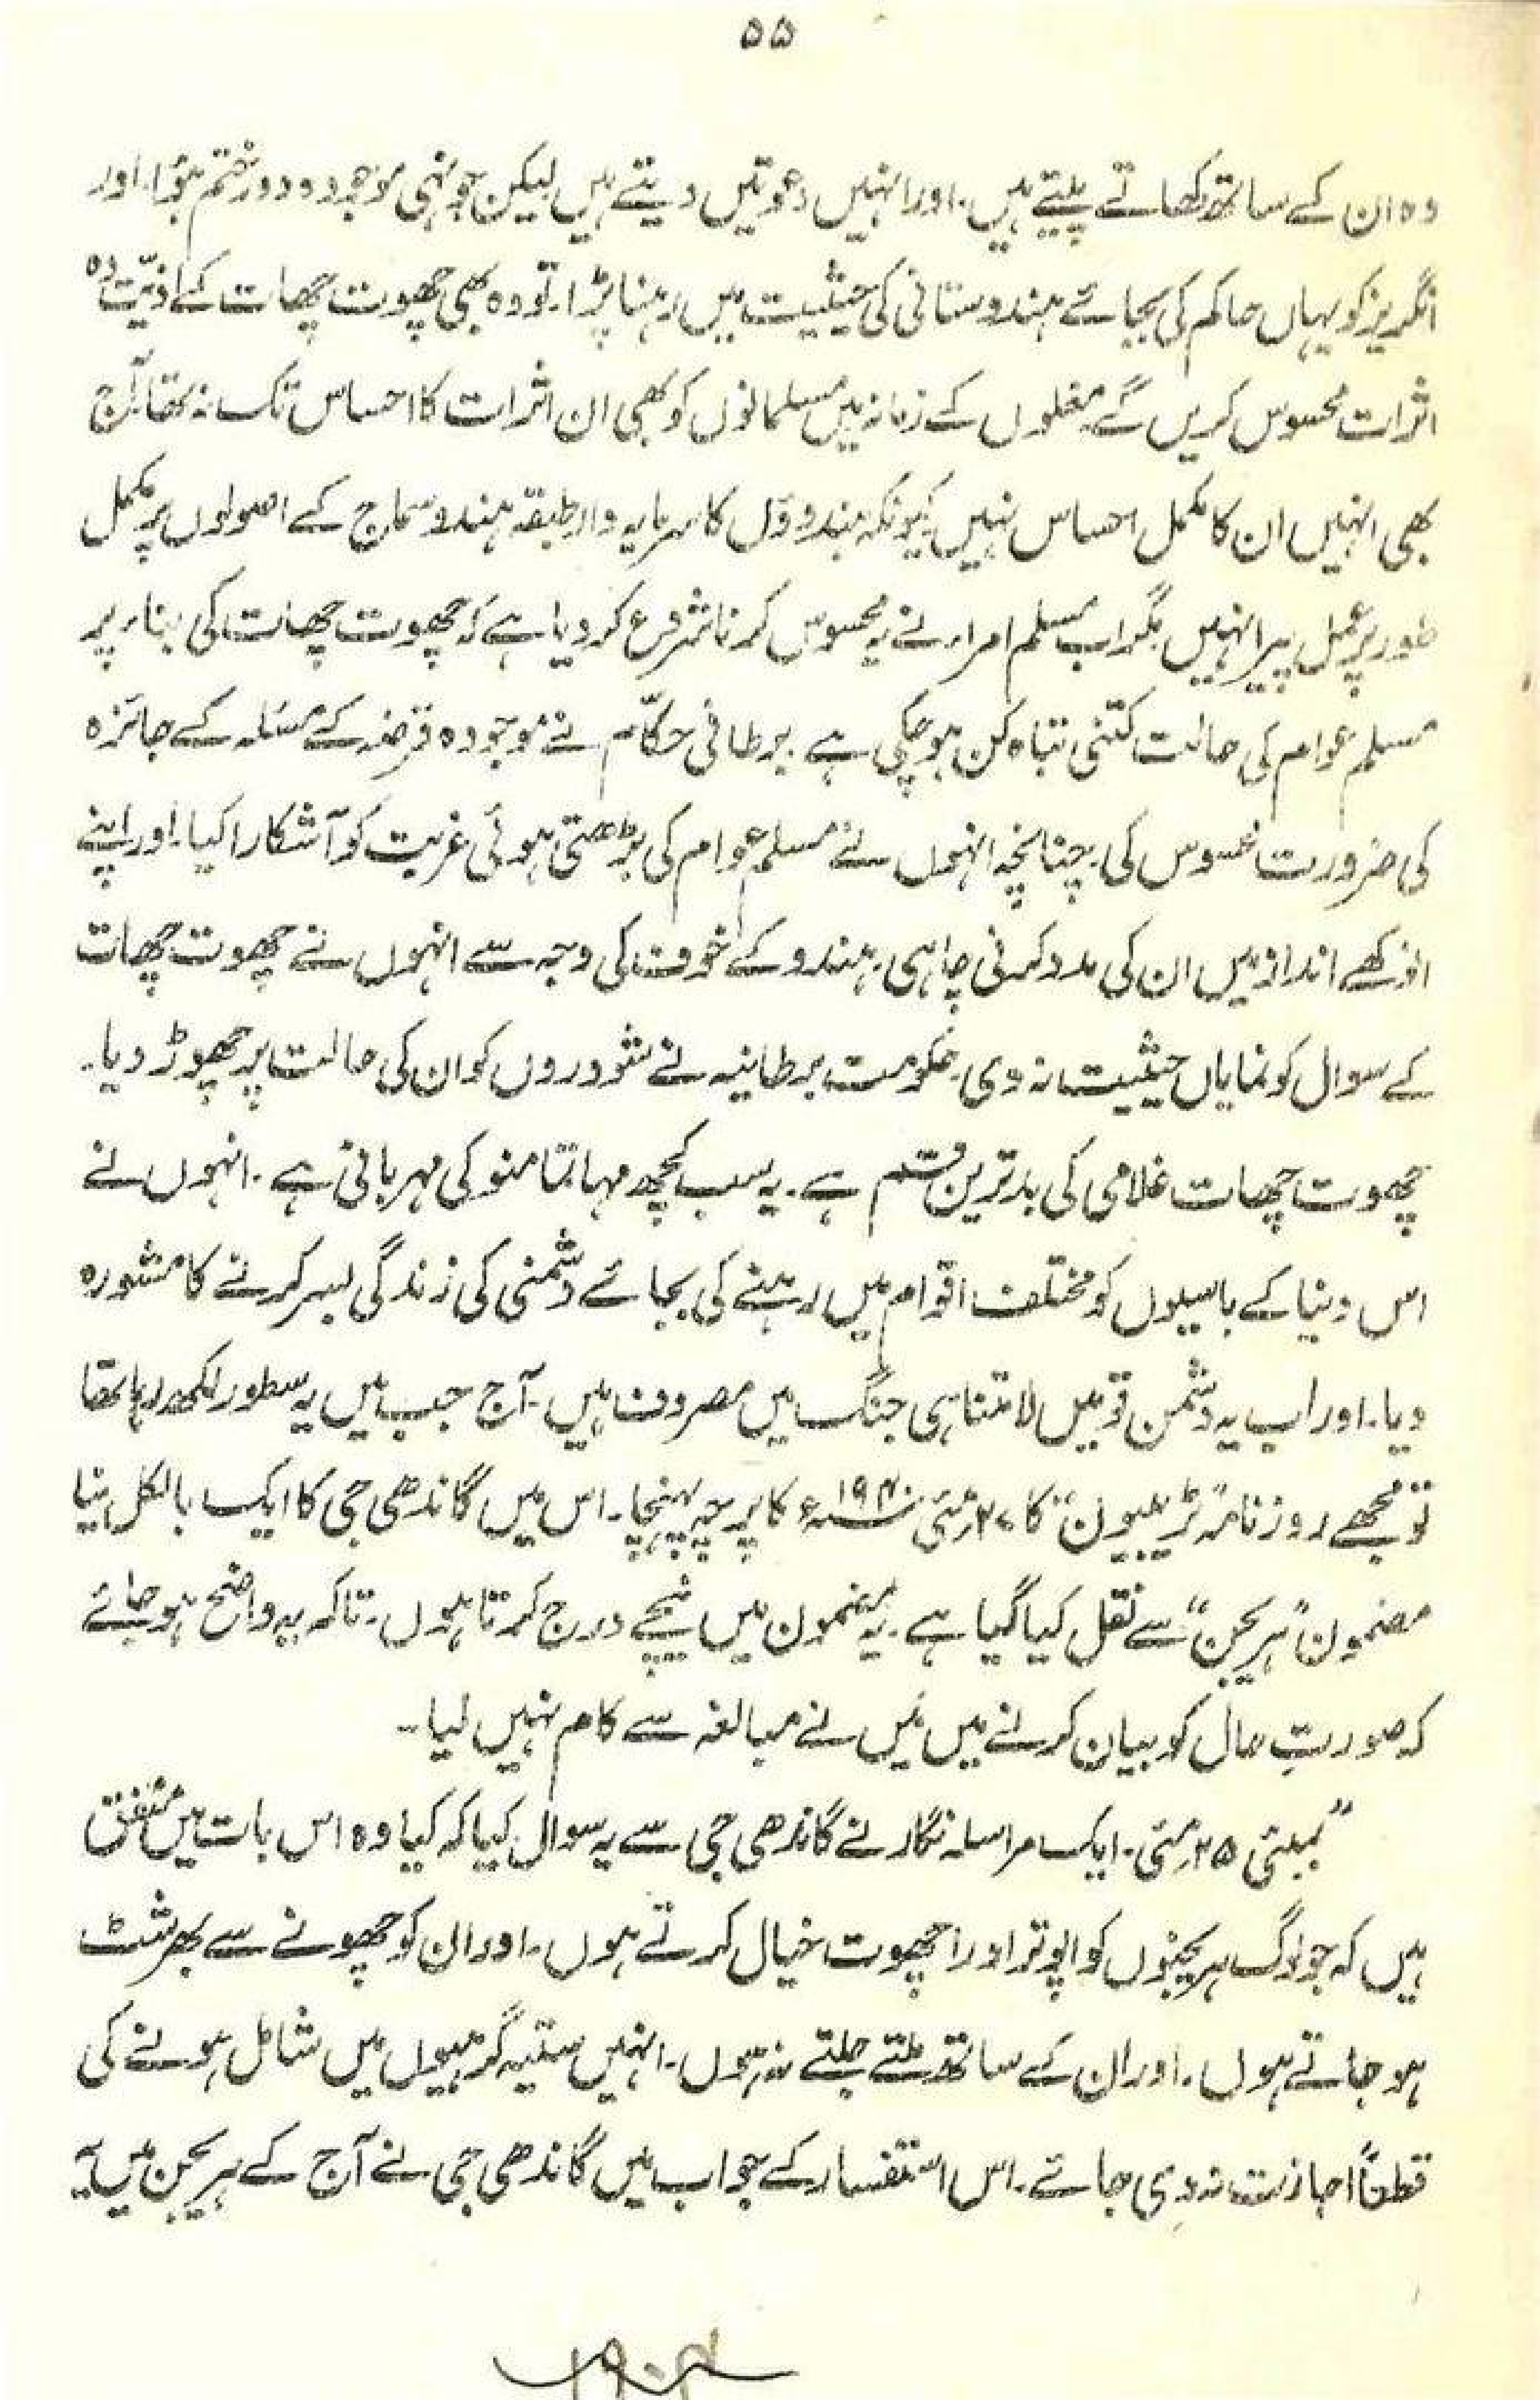 ۵۵
وہ ان کے ساتھ کھاتے پیتے ہیں۔ اور انہیں دعوتیں دیتے ہیں لیکن جونہی موجودہ دور ختم ہؤا۔ اور
انگریز کو یہاں حاکم کی بجائے ہندوستانی کی حیثیت میں رہنا پڑا۔ تو وہ بھی چھوت چھات کے اذیّت دہ
اثرات محسوس کریں گے۔ مغلوں کے زمانہ میں مسلمانوں کو بھی ان اثرات کا احساس تک نہ تھا۔ آج
بھی انہیں ان کا مکمل احساس نہیں کیونکہ ہندوؤں کا سرمایہ دار طبقہ ہندو سماج کے اصولوں پر مکمل
طور پر عمل پیرا نہیں۔ مگر اب مسلم امراء نے یہ محسوس کرنا شروع کر دیا ہے کہ چھوت چھات کی بناء پر
مسلم عوام کی حالت کتنی تباہ کن ہو چکی ہے۔ برطانی حکّام نے موجودہ قرضہ کے مسئلہ کے جائزہ
کی ضرورت محسوس کی۔ چنانچہ انہوں نے مسلم عوام کی بڑھتی ہوئی غربت کو آشکارا کیا۔ اور اپنے
انوکھے انداز میں ان کی مدد کرنی چاہی۔ ہندو کے خوف کی وجہ سے انہوں نے چھوت چھات
کے سوال کو نمایاں حیثیت نہ دی۔ حکومت برطانیہ نے شودروں کو ان کی حالت پر چھوڑ دیا۔
چھوت چھات غلامی کی بدترین قسم ہے۔ یہ سب کچھ مہاتما منو کی مہربانی ہے۔ انہوں نے
اس دنیا کے باسیوں کو مختلف اقوام میں رہنے کی بجائے دشمنی کی زندگی بسر کرنے کا مشورہ
دیا۔ اور اب یہ دشمن قومیں لامتناہی جنگ میں مصروف ہیں۔ آج جب میں یہ سطور لکھ رہا تھا
تو مجھے روزنامہ "ٹریبیون" کا ۲۷ مئی ۱۹۴۰ء کا پرچہ پہنچا۔ اس میں گاندھی جی کا ایک بالکل نیا
مضمون "ہریجن" سے نقل کیا گیا ہے۔ یہ مضمون میں نیچے درج کرتا ہوں۔ تاکہ یہ واضح ہو جائے
کہ صورتِ حال کو بیان کرنے میں مَیں نے مبالغہ سے کام نہیں لیا۔
"بمبئی ۲۵ مئی۔ ایک مراسلہ نگار نے گاندھی جی سے یہ سوال کیا کہ کیا وہ اس بات میں متفق
ہیں کہ جو لوگ ہریجنوں کو اپوتر اور اچھوت خیال کرتے ہوں۔ اور ان کو چھونے سے بھرشٹ
ہو جاتے ہوں۔ اور ان کے ساتھ ملتے جلتے نہ ہوں۔ انہیں ستیہ گرہیوں میں شامل ہونے کی
قطعاً اجازت نہ دی جائے۔ اس استفسار کے جواب میں گاندھی جی نے آج کے ہریجن میں یہ